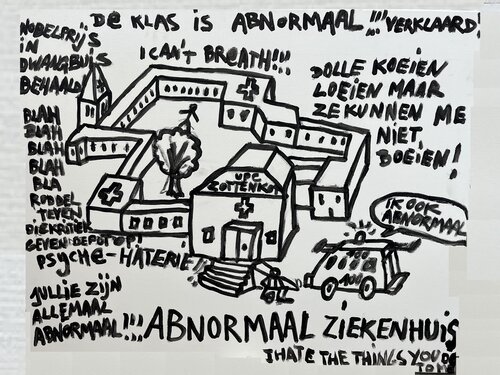 DE KLAS IS ABNORMAAL!!! VERKLAARD!
NOBELPRIJS
IN
DWANGBUIS
BEHAALD!
I CAN'T BREATH!!!
DOLLE KOEIEN
LOEIEN MAAR
ZE KUNNEN ME
NIET
BOEIEN!
BLAH
BLAH
BLAH
BLAH
BLA
RODDEL
TEVEN
DIE KRITIEK
GEVEN DEPOTOP!
PSYCHE-HATERIE!
UPC
ZOTTENKOT
IK OOK
ABNORMAAL
100
JULLIE ZIJN
ALLEMAAL
ABNORMAAL!!!
ABNORMAAL ZIEKENHUIS
I HATE THE THINGS YOU DO
TOM